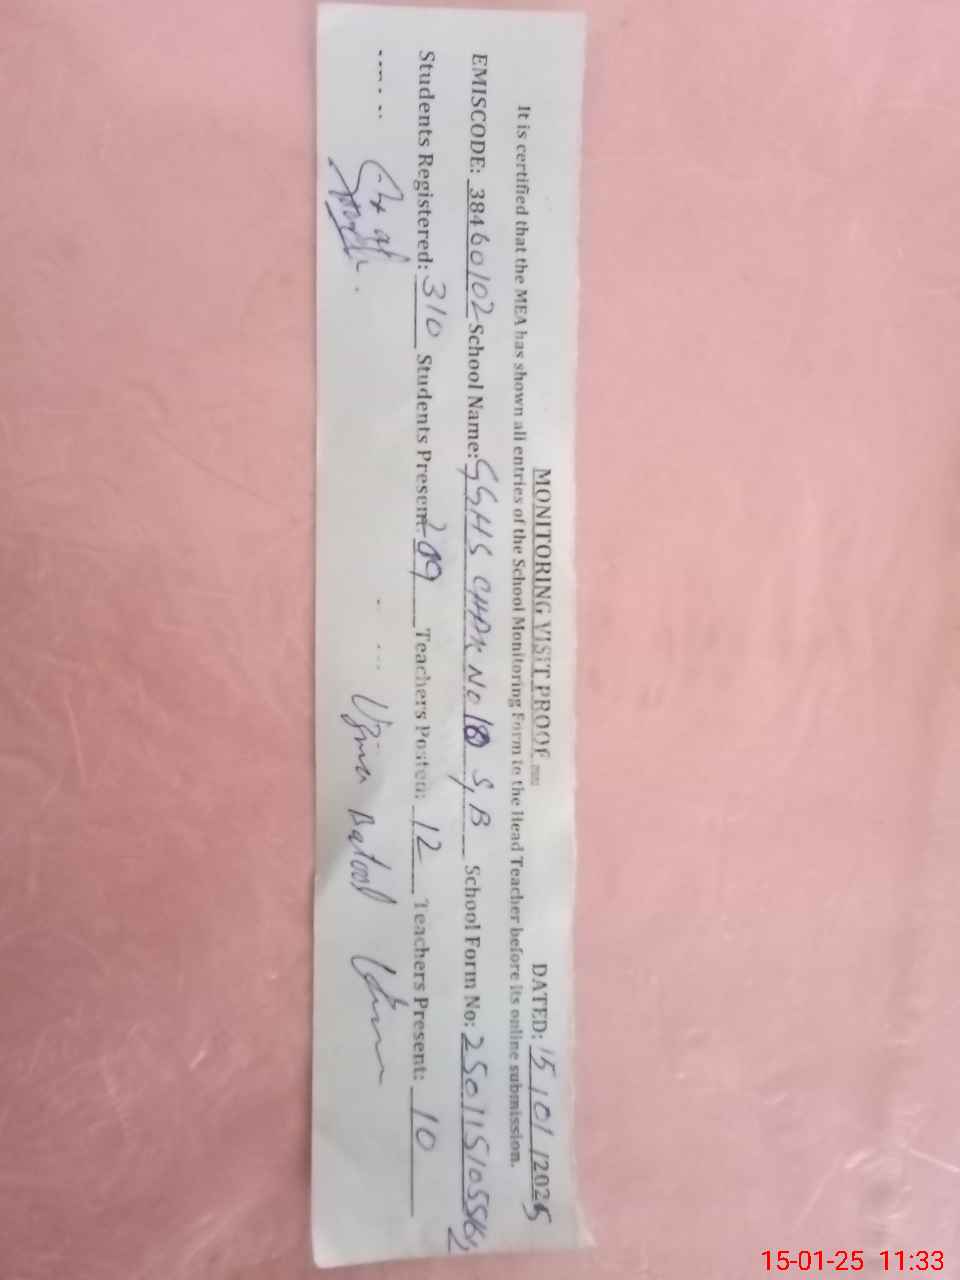 MONITORING VISIT PROOF
DATED: 15/01/2025
It is certified that the MEA has shown all entries of the School Monitoring Form to the Head Teacher before its online submission.
EMISCODE: 38460102 School Name: GGHS CHAK NO 18 S,B School Form No:
Students Registered: 310 Students Present: 209 Teachers Posted: 12 Teachers Present: 10
Uzma Batool
15-01-25 11:33